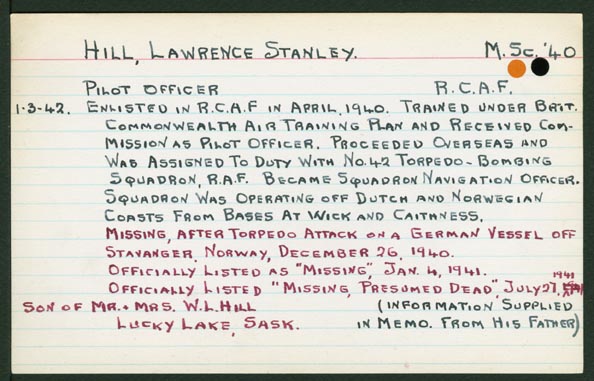 HILL, LAWRENCE STANLEY. M.Sc. '40
PILOT OFFICER R.C.A.F.
1-3-42. ENLISTED IN R.C.A.F IN APRIL, 1940. TRAINED UNDER BRIT.
COMMONWEALTH AIR TRAINING PLAN AND RECEIVED COM-
MISSION AS PILOT OFFICER. PROCEEDED OVERSEAS AND
WAS ASSIGNED TO DUTY WITH No. 42 TORPEDO-BOMBING
SQUADRON, R.A.F. BECAME SQUADRON NAVIGATION OFFICER.
SQUADRON WAS OPERATING OFF DUTCH AND NORWEGIAN
COASTS FROM BASES AT WICK AND CAITHNESS.
MISSING, AFTER TORPEDO ATTACK ON A GERMAN VESSEL OFF
STAVANGER, NORWAY, DECEMBER 26, 1940.
OFFICIALLY LISTED AS "MISSING", JAN. 4, 1941.
OFFICIALLY LISTED "MISSING, PRESUMED DEAD", JULY 27, 1941
SON OF MR. + MRS. W.L. HILL (INFORMATION SUPPLIED
LUCKY LAKE, SASK. IN MEMO. FROM HIS FATHER)